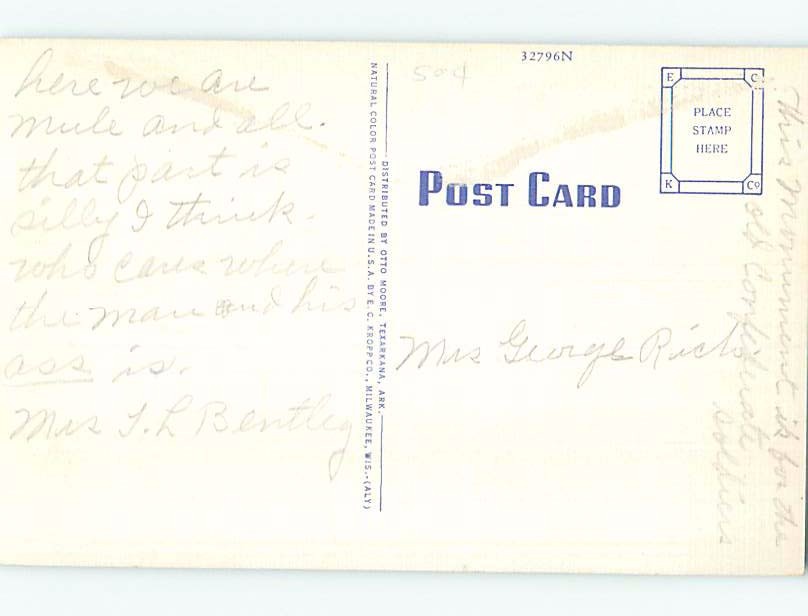 here we are
mule and all.
that part is
silly I think.
who cares where
the man and his
ass is.
Mrs T. L Bentley
NATURAL COLOR POST CARD MADE IN U.S.A. BY E. C. KROPP CO., MILWAUKEE, WIS.-(ALY)
DISTRIBUTED BY OTTO MOORE, TEXARKANA, ARK.
50¢
32796N
E C
PLACE
STAMP
HERE
K Co
POST CARD
Mrs George Rich.
This Monument is for the
old Confederate
soldiers